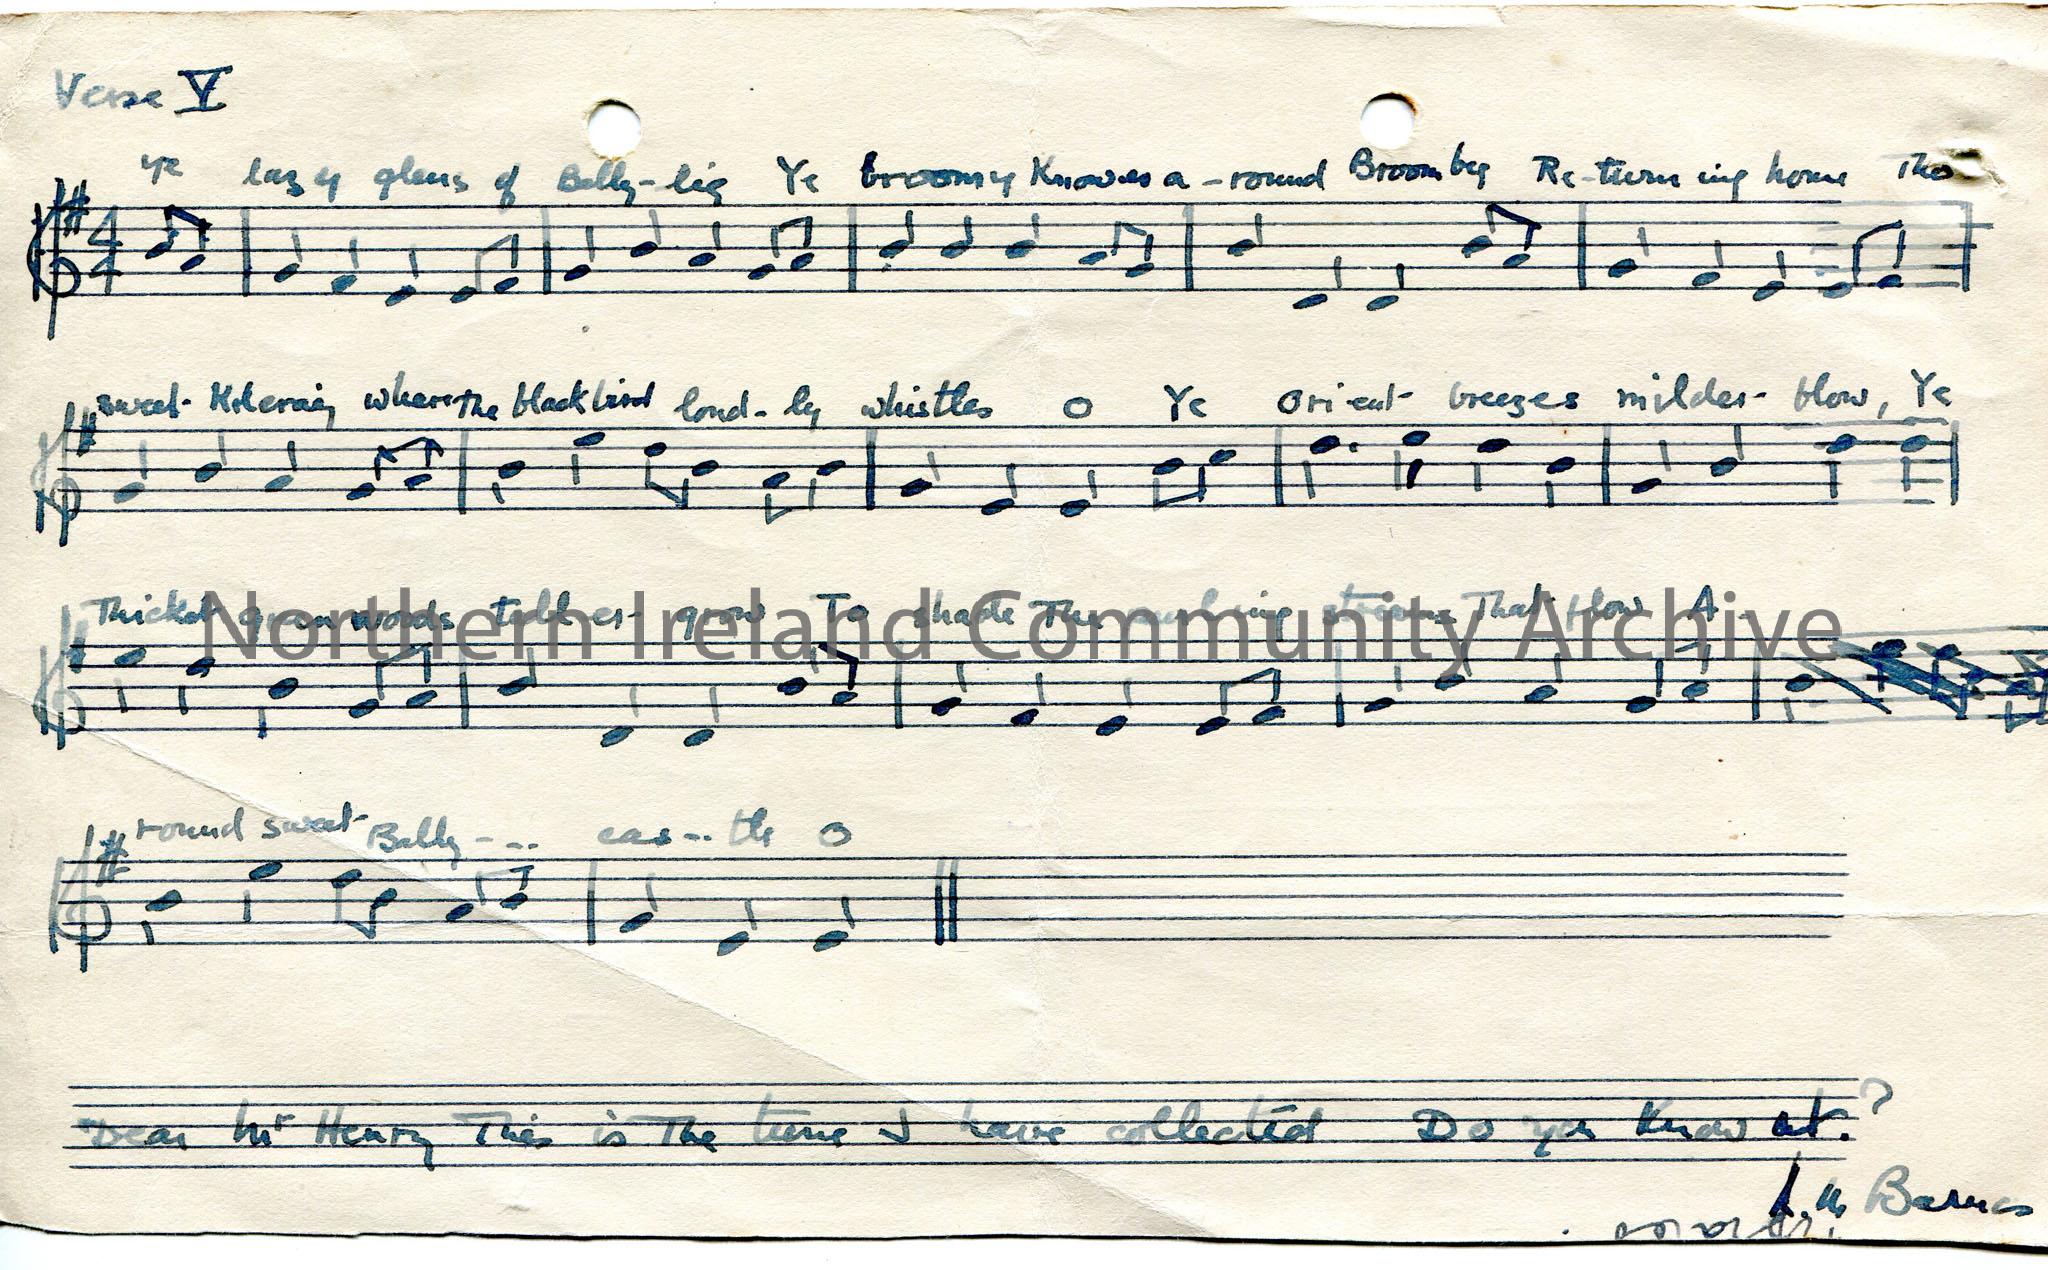 Verse V
Ye lazy glens of Bally-lig Ye broomy Knowes a-round Broombeg Re-turning home Tho
sweet Kilcraig where the blackbird loud-ly whistles O Ye ori-ent breezes milder blow, Ye
Thicket green woods taller grow To shade The streams That flow A-
Northern Ireland Community Archive
round sweet Bally--- cas--tle O
Dear Mr Henry This is The tune I have collected Do you Know it?
Barnes